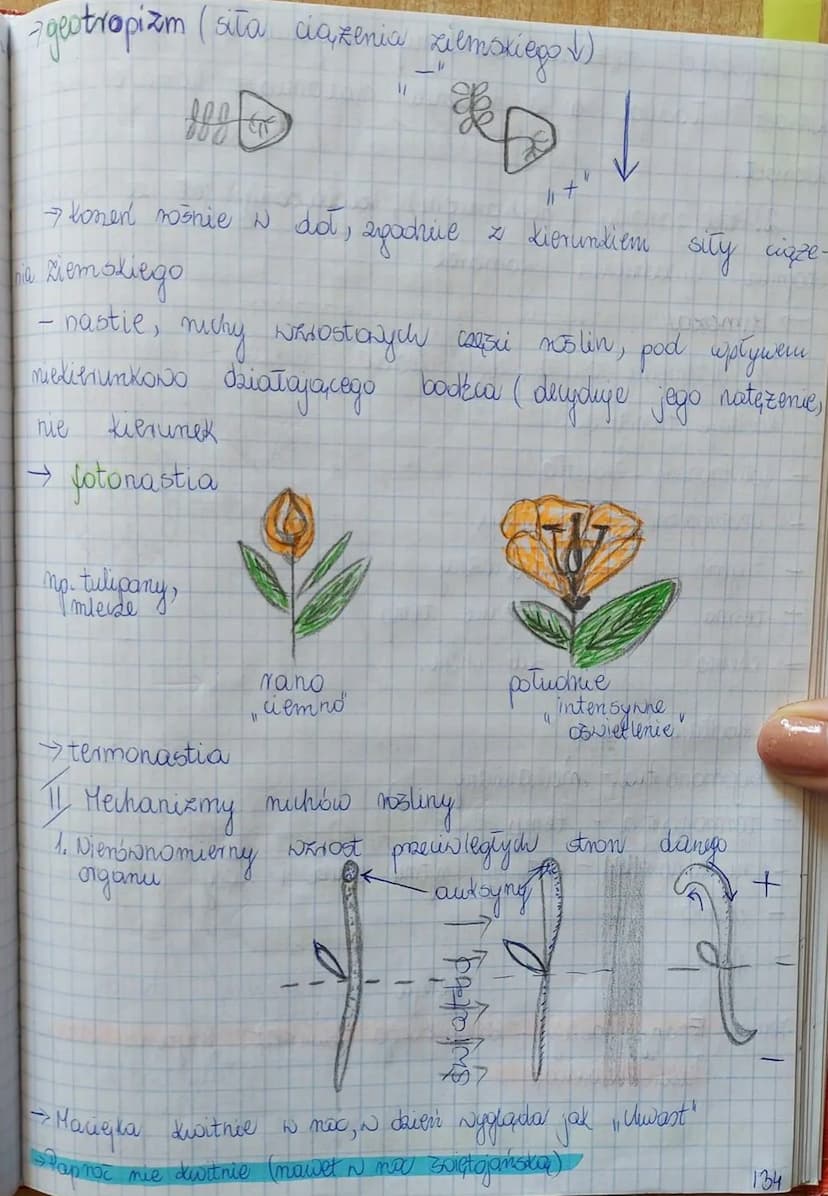 → geotropizm (siła ciążenia ziemskiego ↓)
„−"
„+"
→ korzeń rośnie w dół, zgodnie z kierunkiem siły ciąże-
nia ziemskiego
– nastie, ruchy wzrostowych części roślin, pod wpływem
niekierunkowo działającego bodźca (decyduje jego natężenie,
nie kierunek
→ fotonastia
np. tulipany,
mlecze
rano
„ciemno"
południe
„intensywne
oświetlenie"
→ termonastia
II Mechanizmy ruchów rośliny
1. Nierównomierny wzrost przeciwległych stron danego
organu
auksyny
światło
+
−
−
→ Maciejka kwitnie w noc, w dzień wygląda jak „chwast"
→ Paproć nie kwitnie (nawet w noc świętojańską)
134